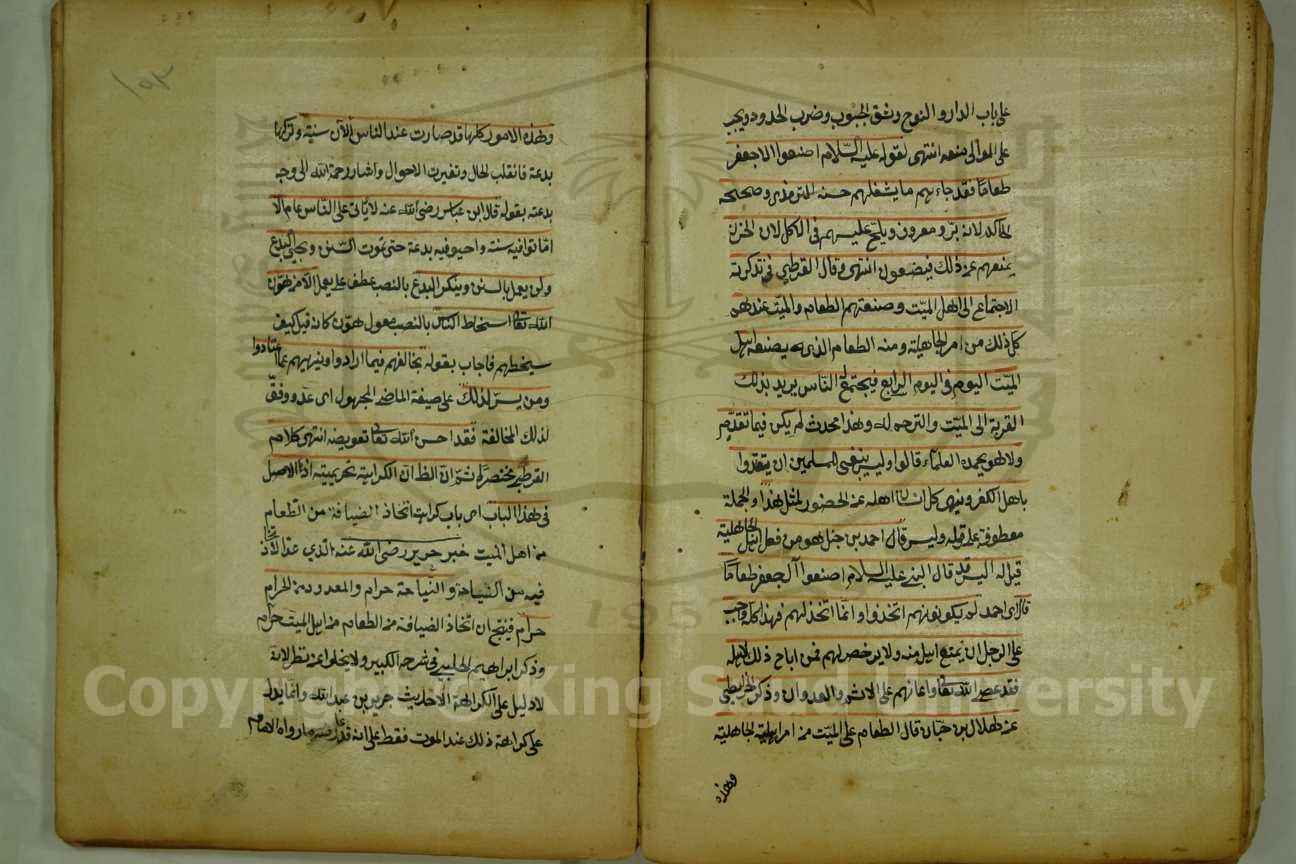 على باب الدار والنوح وشق الجيوب وضرب الخدود ويجب
على الموالى منعه انتهى لقوله عليه السلام اصنعوا لآل جعفر
طعاما فقد جاءهم ما يشغلهم حسنه الترمذى وصححه
الحاكم لانه بر ومعروف ويلح عليهم فى الاكل لان الحزن
يمنعهم عن ذلك فيضعون انتهى وقال القرطبى فى تذكرته
الاجتماع الى اهل الميت وصنعتهم الطعام والميت عندهم
كل ذلك من امر الجاهلية ومنه الطعام الذى يصنعه اهل
الميت اليوم فى اليوم الرابع فيجتمع الناس يريد بذلك
القربة الى الميت والترحم له وهذا محدث لم يكن فيما تقدم
ولا هو يحمده العلماء قالوا وليس ينبغى للمسلمين ان يقتدوا
باهل الكفر وينهى كل انسان اهله عن الحضور لمثل هذا والجملة
معطوفة على قوله وليس قال احمد بن حنبل هو من فعل اهل الجاهلية
قيل له اليس قد قال النبى عليه السلام اصنعوا آل جعفر طعاما
قال اى احمد لم يكونوا هم اتخذوا وانما اتخذ لهم فهذا كله واجب
على الرجل ان يمنع اهله منه ولا يرخص لهم فمن اباح ذلك لاهله
فقد عصى الله تعالى واعانهم على الاثم والعدوان وذكر الخرائطى
عن هلال بن خباب قال الطعام على الميت من امر الجاهلية
وهذه
١٥٢
وهذه الامور كلها قد صارت عند الناس الآن سنية وتركها
بدعة فانقلب الحال وتغيرت الاحوال واشار رحمة الله الى وجه
بدعته بقوله قال ابن عباس رضى الله عنه لا يأتى على الناس عام الا
اماتوا فيه سنة واحيو فيه بدعة حتى تموت السنن وتحيى البدع
ولن يعمل بالسنن وينكر البدع بالنصب عطف على يعمل الا من هون
الله تعالى اسخاط الناس بالنصب مفعول هون كانه قيل كيف
يسخطهم فاجاب بقوله بخالفهم فيما ارادوا وينهيهم عما اعتادوا
ومن يسر لذلك على صيغة الماضى المجهول اى عد ووفق
لذلك المخالفة فقد احسن الله تعالى تعويضه انتهى كلام
القرطبى مختصرا ثم ان الظ ان الكراهية تحريمية اذ الاصل
فى هذا الباب اى باب كراهة اتخاذ الضيافة من الطعام
من اهل الميت خبر جرير رضى الله عنه الذي عد الاتخاذ
فيه من النياحة والنياحة حرام والمعدود من الحرام
حرام فينتج ان اتخاذ الضيافة من الطعام من اهل الميت حرام
وذكر ابراهيم الحلبى فى شرحه الكبير ولا يخلوا عن نظر لانه
لا دليل على الكراهة الا حديث جرير بن عبد الله وانما يدل
على كراهة ذلك عند الموت فقط على انه قد عارضه ما رواه الامام